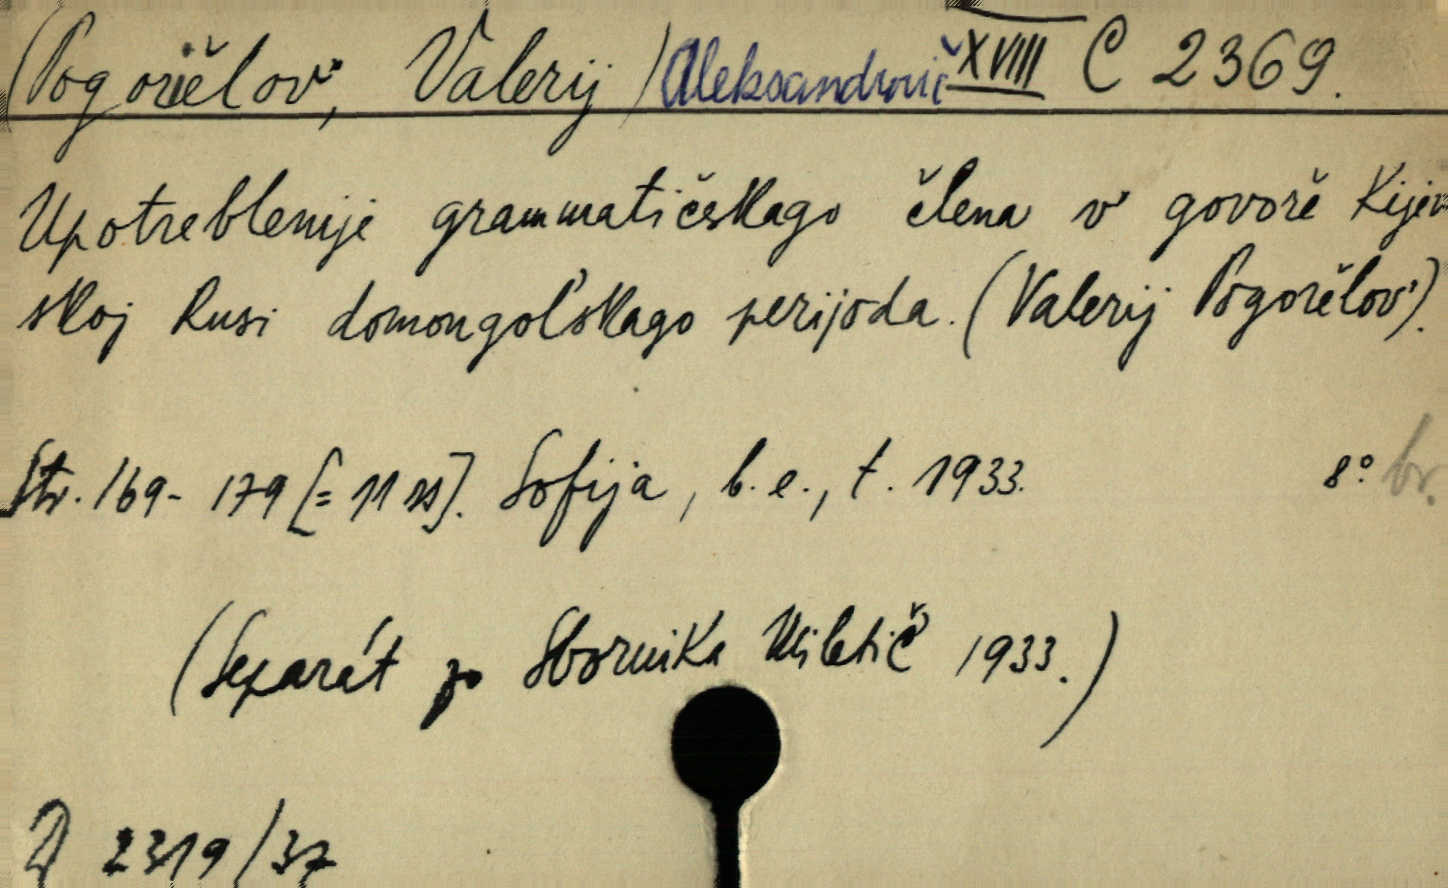 (Pogorělov, Valerij) Aleksandrovič XVIII C 2369.
Upotreblenije grammatičeskago člena v govorě Kijev
skoj Rusi domongoľskago perijoda. (Valerij Pogorělov).
Str. 169-179 [= 11 s]. Sofija, b. e., t. 1933. 8° br.
(Separát zo Sbornika Miletič 1933.)
2319/37